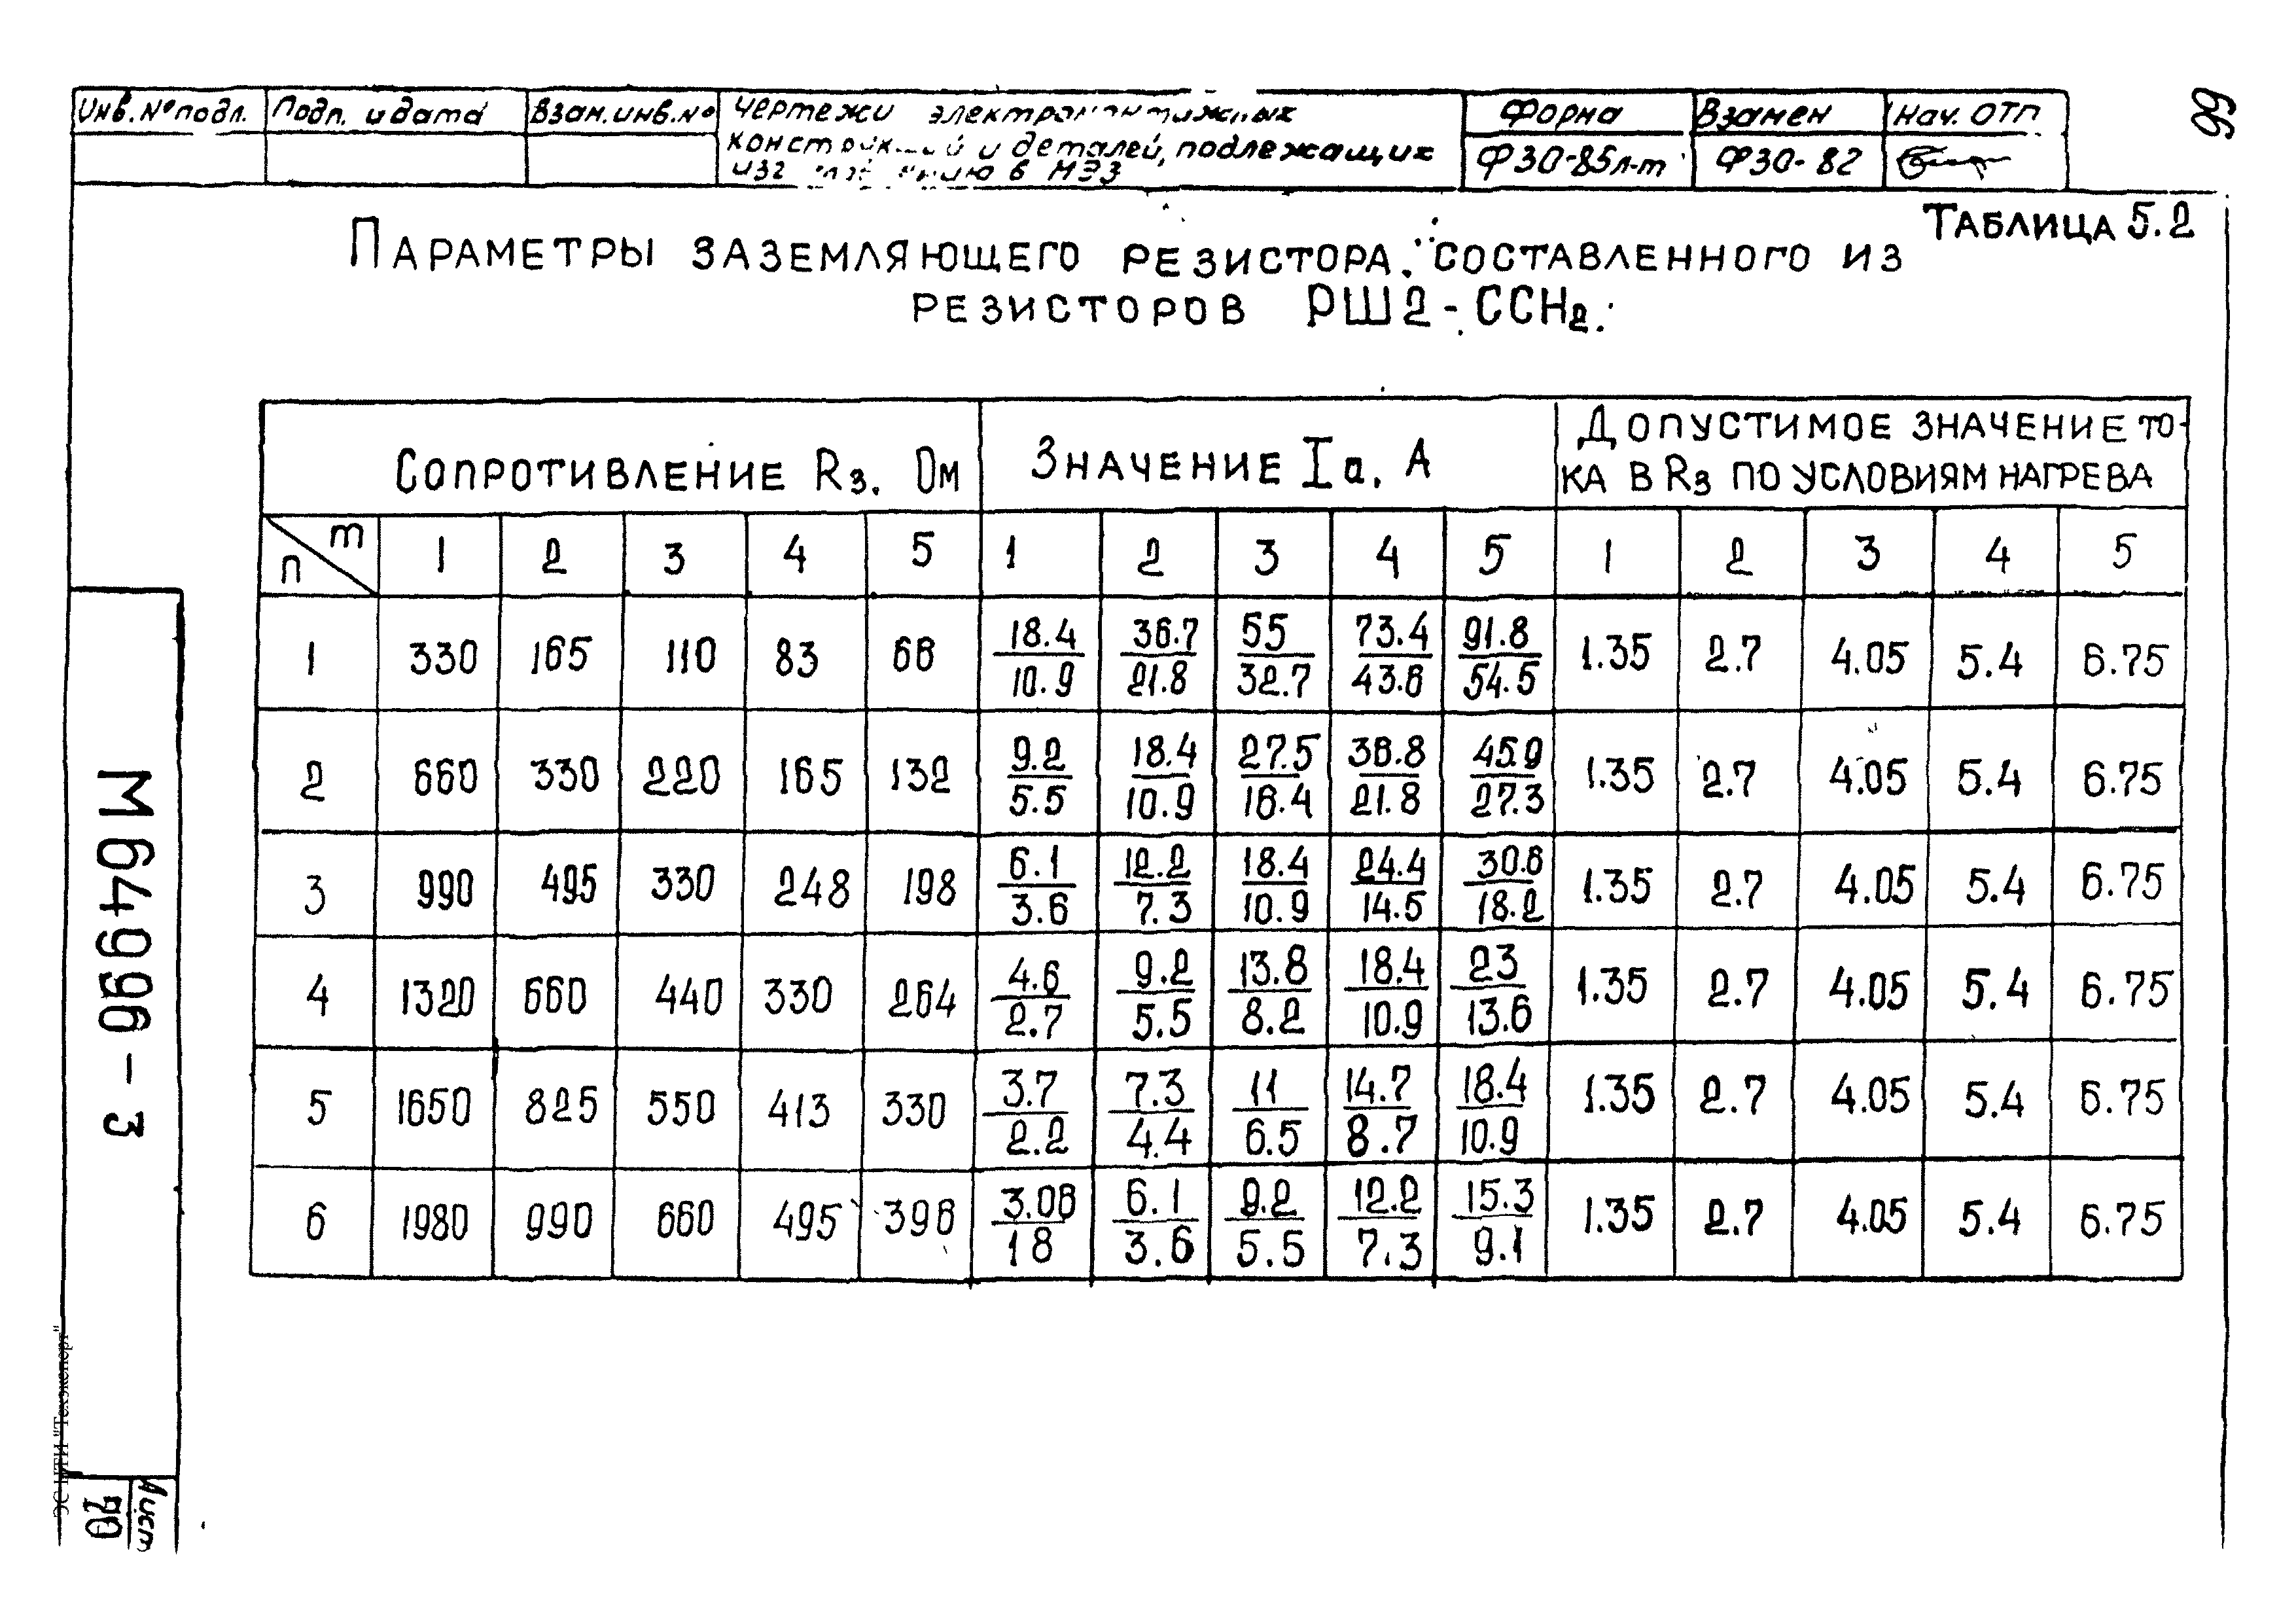 Инв.№подл. Подп. и дата Взам.инв.№ Чертежи электромонтажных Форма Взамен Нач. ОТП
конструкций и деталей, подлежащих Ф30-85л-т Ф30-82
в МЭЗ
66
Таблица 5.2
Параметры заземляющего резистора, составленного из
резисторов РШ2-ССН2.
Сопротивление Rз, Ом Значение Iа, А Допустимое значение то-
ка в Rз по условиям нагрева
n m 1 2 3 4 5 1 2 3 4 5 1 2 3 4 5
1 330 165 110 83 66 18.4/10.9 36.7/21.8 55/32.7 73.4/43.6 91.8/54.5 1.35 2.7 4.05 5.4 6.75
2 660 330 220 165 132 9.2/5.5 18.4/10.9 27.5/16.4 36.8/21.8 45.9/27.3 1.35 2.7 4.05 5.4 6.75
3 990 495 330 248 198 6.1/3.6 12.2/7.3 18.4/10.9 24.4/14.5 30.6/18.2 1.35 2.7 4.05 5.4 6.75
4 1320 660 440 330 264 4.6/2.7 9.2/5.5 13.8/8.2 18.4/10.9 23/13.6 1.35 2.7 4.05 5.4 6.75
5 1650 825 550 413 330 3.7/2.2 7.3/4.4 11/6.5 14.7/8.7 18.4/10.9 1.35 2.7 4.05 5.4 6.75
6 1980 990 660 495 396 3.06/18 6.1/3.6 9.2/5.5 12.2/7.3 15.3/9.1 1.35 2.7 4.05 5.4 6.75
М64996-3
Лист
70
ЭС НТИ "Техэксперт"